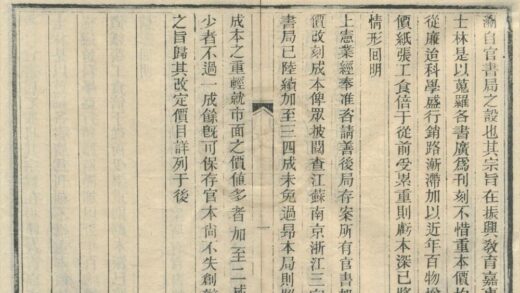 溯自官書局之設也其宗旨在振興教育嘉惠
士林是以蒐羅各書廣爲刊刻不惜重本價均
從廉迨科學盛行銷路漸滯加以近年百物增
價紙張工食倍于從前受累重則虧本深已將
情形回明
上憲業經奉准咨請善後局存案所有官書
價改刻成本俾眾披閱查江蘇南京浙江三
書局已陸續加至三四成未免過昻本局則
成本之重輕就市面之價値多者加至二成
少者不過一成餘旣可保存官本尙不失創
之旨歸其改定價目詳列于後
一